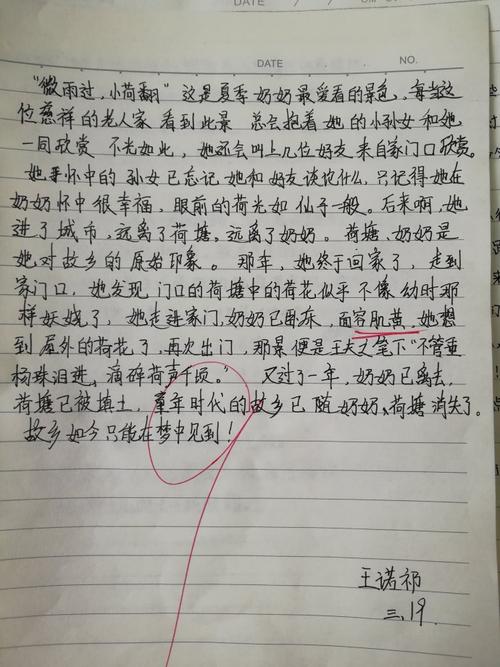 DATE
DATE NO.
"微雨过,小荷翻"这是夏季奶奶最爱看的景色,每当这
位慈祥的老人家看到此景 总会抱着她的小孙女和她
一同欣赏 不光如此,她还会叫上几位好友来自家门口欣赏。
她 怀中的孙女已忘记她和好友谈论什么,只记得她在
奶奶怀中很幸福,眼前的荷光如仙子一般。后来啊,她
进了城市,远离了荷塘,远离了奶奶。荷塘、奶奶是
她对故乡的原始印象。那年,她终于回家了,走到
家门口,她发现门口的荷塘中的荷花似乎不像幼时那
样妖娆了,她走进家门,奶奶已卧床,面容肌黄,她想
到屋外的荷花了,再次出门,那景便是 笔下"不管垂
杨珠泪进,滴碎荷声千顷。" 又过了一年,奶奶已离去,
荷塘已被填土,童年时代的故乡已随奶奶、荷塘消失了。
故乡如今只能在梦中见到!
王诺祁
三.19